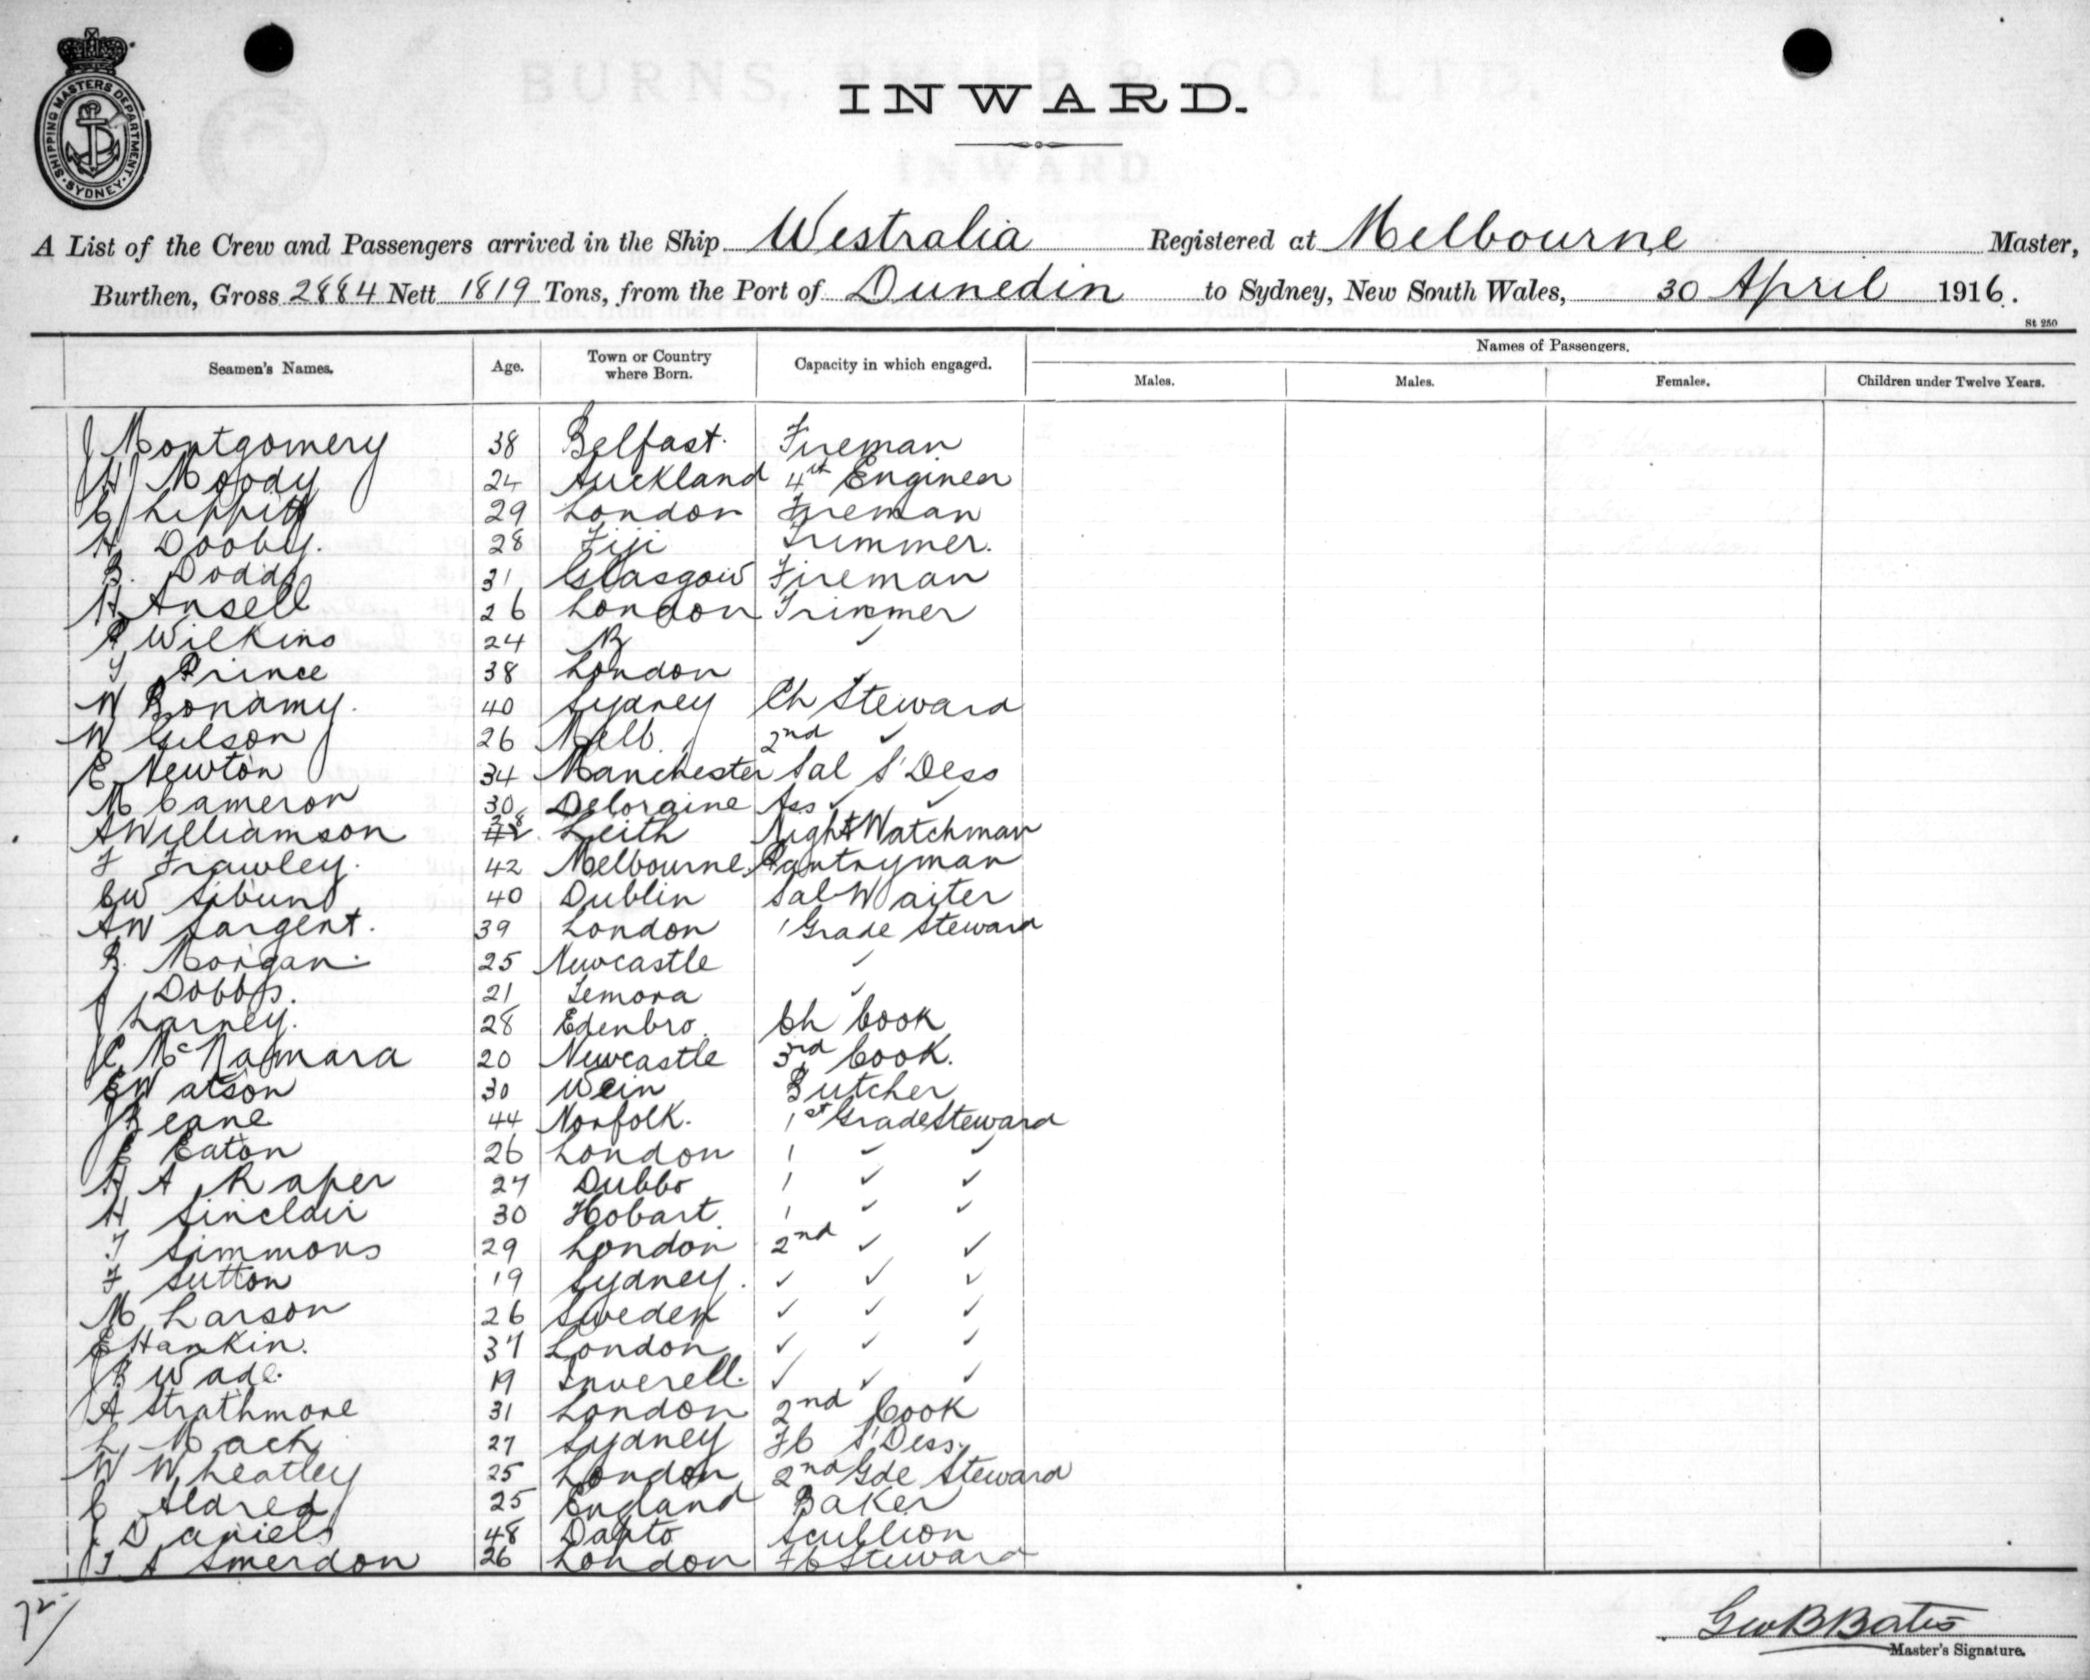 SHIPPING MASTERS DEPARTMENT. SYDNEY.
INWARD.
A List of the Crew and Passengers arrived in the Ship Westralia Registered at Melbourne, Master,
Burthen, Gross 2884 Nett 1819 Tons, from the Port of Dunedin to Sydney, New South Wales, 30 April 1916.
St 250
Seamen's Names. Age. Town or Country where Born. Capacity in which engaged. Names of Passengers.
Males. Males. Females. Children under Twelve Years.
J Montgomery 38 Belfast. Fireman
H J Moody 24 Auckland 4th Engineer
C Lippitt 29 London Fireman
H Dooby. 28 Fiji Trimmer.
B. Doddy 31 Glasgow Fireman
H Ansell 26 London Trimmer
P Wilkins 24 ✓
T Prince 38 London ✓
W Bonamy. 40 Sydney Ch Steward
W Gilson 26 Melb. 2nd ✓
E Newton 34 Manchester Sal S'Dess
M Cameron 30 Deloraine Ass ✓ ✓
A Williamson 38 Leith Night Watchman
F Frawley. 42 Melbourne. Pantryman
CW Sibun 40 Dublin Sal Waiter
AW Sargent. 39 London 1 Grade Steward
R. Morgan. 25 Newcastle ✓
J Dobbs. 21 Temora ✓
J Larney. 28 Edenbro. Ch Cook
J C McNamara 20 Newcastle 3rd Cook.
E Watson 30 Wein Butcher
J Beane 44 Norfolk. 1st Grade Steward
E Eaton 26 London 1 ✓ ✓
H A Raper 27 Dubbo 1 ✓ ✓
H Sinclair 30 Hobart. 1 ✓ ✓
T Simmons 29 London 2nd ✓ ✓
F Sutton 19 Sydney. ✓ ✓ ✓
M Larson 26 Sweden ✓ ✓ ✓
E Hankin. 37 London ✓ ✓ ✓
J B Wade. 19 Inverell. ✓ ✓ ✓
A Strathmore 31 London 2nd Cook
L Mack 27 Sydney FC S'Dess.
W Wheatley 25 London 2nd Gde Steward
C Aldred 25 England Baker
J. Daniels 48 Dapto Scullion
J A Smerdon 26 London FC Steward
72
Geo B Bates
Master's Signature.